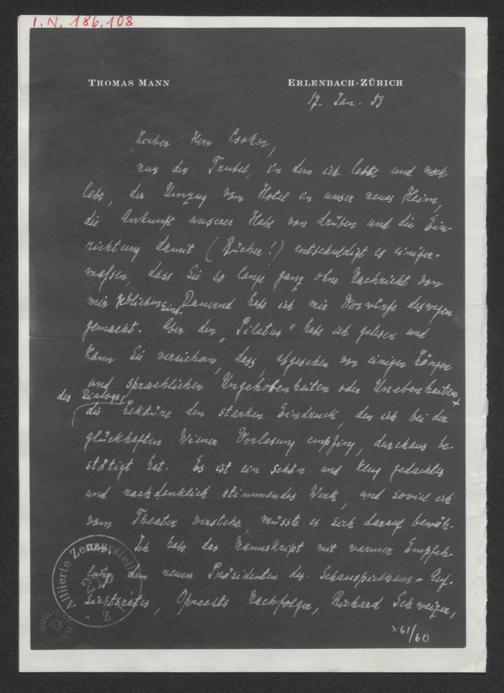 I.N. 186.108
THOMAS MANN ERLENBACH-ZÜRICH
17. Jan. 53
Lieber Herr Csokor,
nur der Trubel, in dem ich lebte und noch
lebe, der Umzug vom Hotel in unser neues Heim,
die Ankunft unserer Habe von drüben und die Ein-
richtung damit (Bücher!) entschuldigt es einiger-
maßen, dass Sie so lange ganz ohne Nachricht von
mir geblieben sind. Dauernd habe ich mir Vorwürfe deswegen
gemacht. Aber den „Pilatus" habe ich gelesen und
kann Sie versichern, dass, abgesehen von einigen Längen
und sprachlichen Ungehobenheiten oder Unebenheiten
des Dialogs,
die Lektüre den starken Eindruck, den ich bei der
glückhaften Wiener Vorlesung empfing, durchaus be-
stätigt hat. Es ist ein schön und klug gedachtes
und nachdenklich stimmendes Werk, und soviel ich
vom Theater verstehe, müsste es sich darauf bewäh-
Ich habe das Manuskript mit warmer Empfeh-
lung dem neuen Präsidenten des Schauspielhaus-Auf-
sichtsrates, Oprechts Nachfolger, Richard Schweizer,
Alliierte Zensurstelle
x61/60